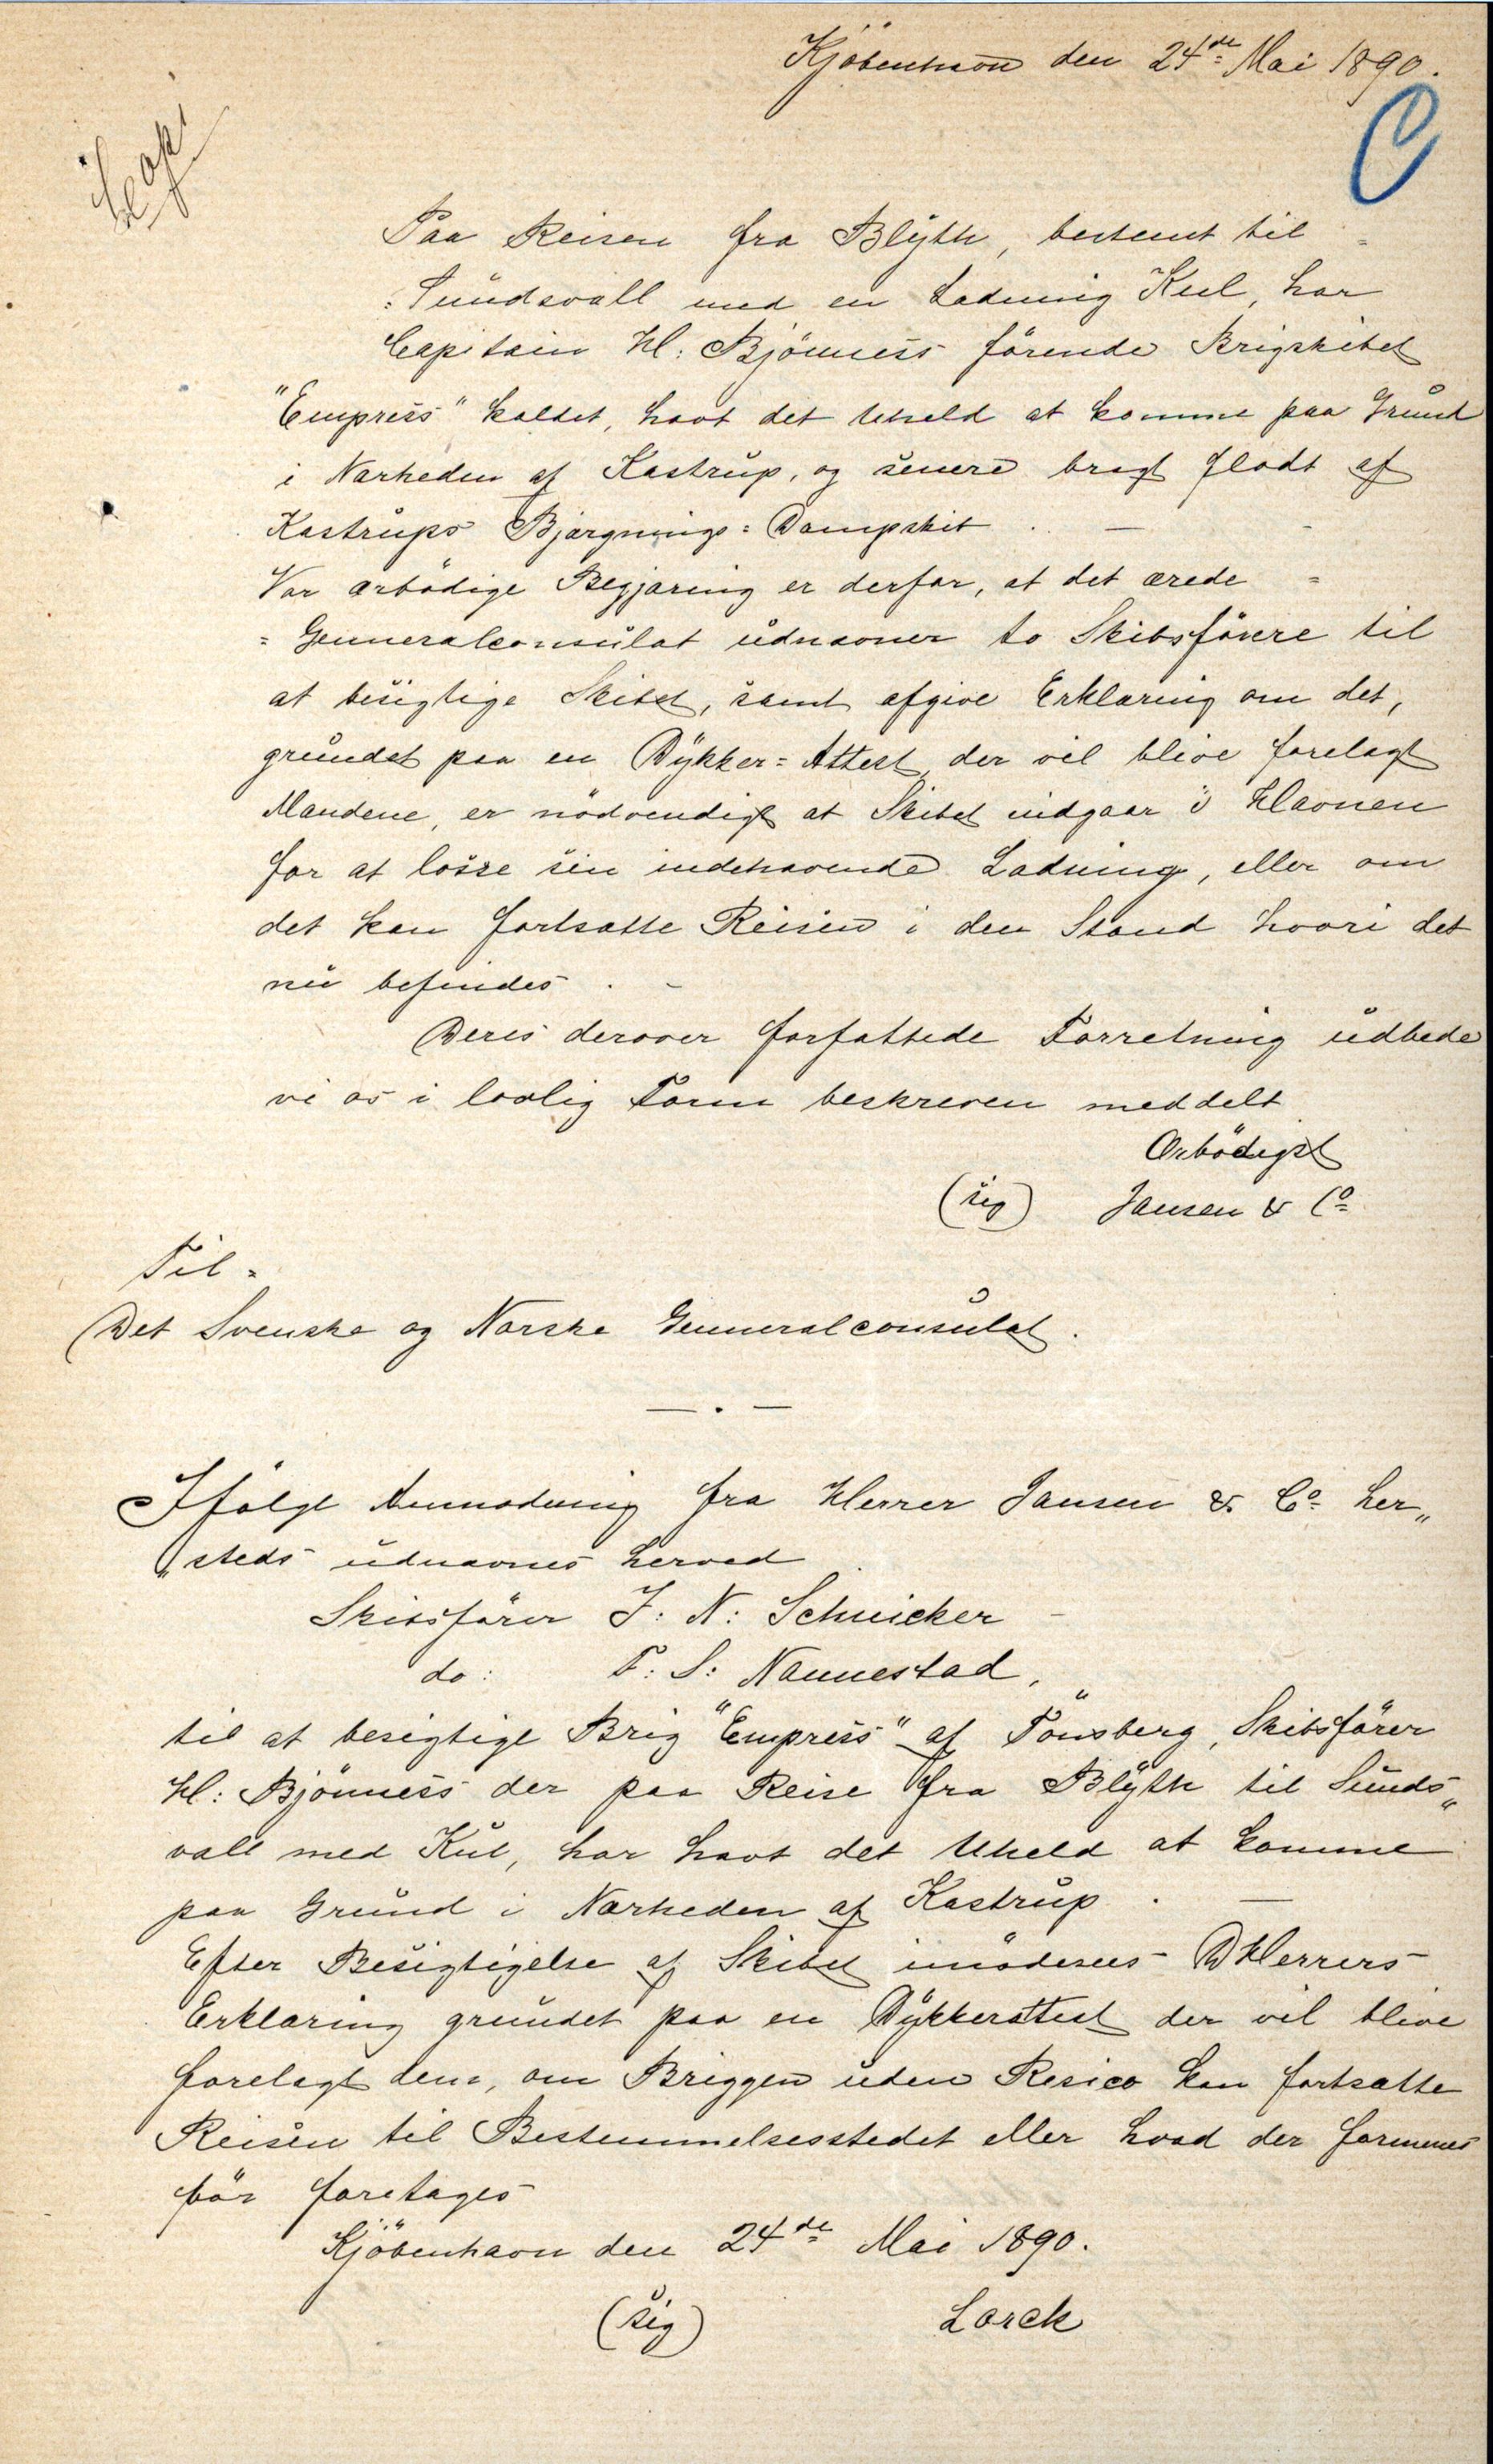 Kjöbenhavn den 24de Mai 1890.
C
Kopi
Paa Reisen fra Blyth, bestemt til =
= Sundsvall med en Ladning Kul, har
Capitain H: Bjönness förende Brigskibet
"Empress" kaldet, havt det Uheld at komme paa Grund
i Nærheden af Kastrup, og senere bragt flodt af
Kastrups Bjærgnings = Dampskib . —
Vor ærbödige Begjæring er derfor, at det ærede =
= Genneralconsulat udnævner to Skibsförere til
at besigtige Skibet, samt afgive Erklæring om det,
grundet paa en Dykker = Attest der vil blive forelagt
Mændene, er nödvendigt at Skibet indgaar i Havnen
for at losse sin indehavende Ladning, eller om
det kan fortsætte Reisen i den Stand hvori det
nu befindes . -
Deres derover forfattede Forretning udbede
vi os i lovlig Form beskreven meddelt
Ærbödigst
(sig) Jansen & Co
Til =
Det Svenske og Norske Genneralconsulat.
— . —
Ifölge Anmodning fra Herrer Jansen & Co her„
„steds udnævnes herved
Skibsförer J: N: Schnicker
do: F: S: Nannestad,
til at besigtige Brig "Empress" af Tönsberg, Skibsförer
H: Bjönness der paa Reise fra Blyth til Sunds„
vall med Kul, har havt det Uheld at komme
paa Grund i Nærheden af Kastrup . —
Efter Besigtigelse af Skibet imödesees DHerrers
Erklæring grundet paa en Dykkerattest der vil blive
forelagt dem, om Briggen uden Resico kan fortsætte
Reisen til Bestemmelsesstedet eller hvad der formenes
bör foretages
Kjöbenhavn den 24de Mai 1890.
(sig) Lorck